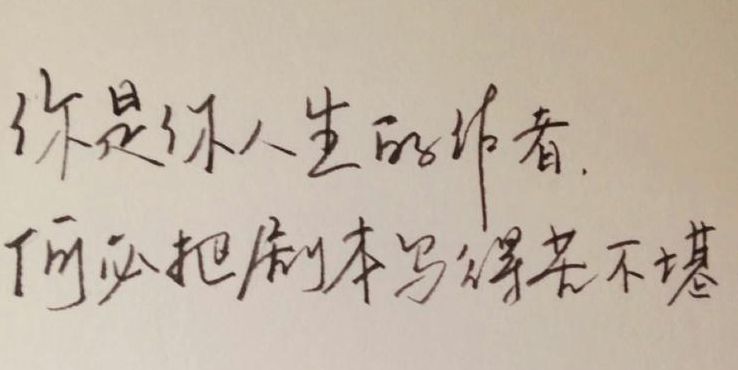 你是你人生的作者.
何必把剧本写得苦不堪